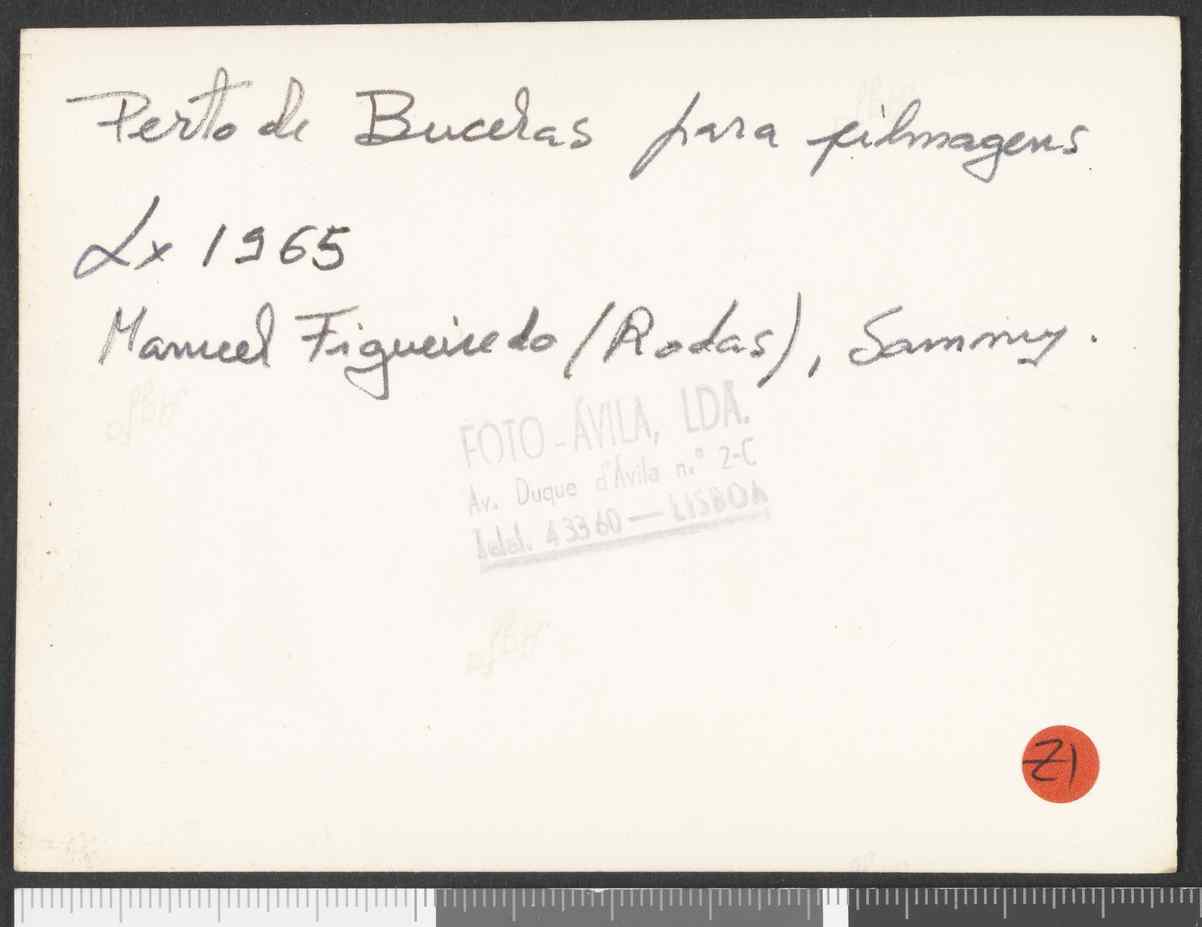 Perto de Bucelas para filmagens
Lx 1965
Manuel Figueiredo (Rodas), Sammy.
FOTO-ÁVILA, LDA.
Av. Duque d'Ávila n.º 2-C
Telef. 43360 — LISBOA
Z1